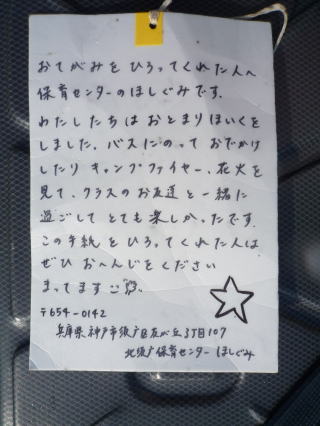 おてがみを ひろってくれた人へ
保育センターのほしぐみです。
わたしたちは おとまりほいくを
しました。バスにのって おでかけ
したり キャンプファイヤー、花火を
見て、クラスのお友達と一緒に
過ごして とても楽しかったです。
この手紙を ひろってくれた人は
ぜひ おへんじをください
まってます
〒654-0142
兵庫県神戸市須戸区友が丘3丁目107
北須戸保育センター ほしぐみ